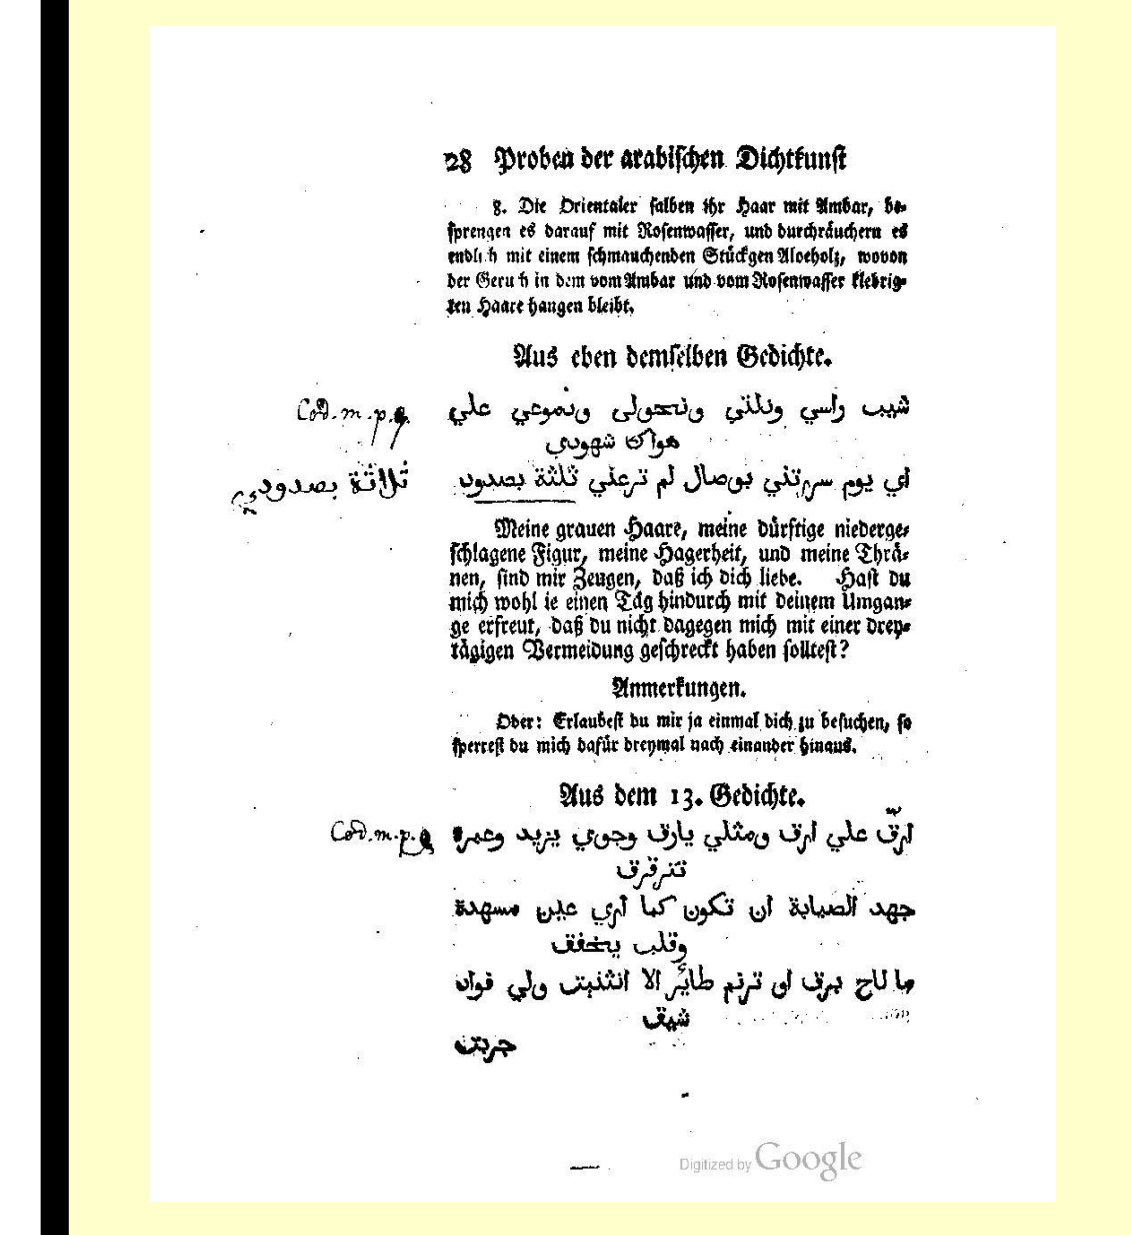 28 Proben der arabischen Dichtkunst
8. Die Orientaler salben ihr Haar mit Ambar, be-
sprengen es darauf mit Rosenwasser, und durchräuchern es
endlich mit einem schmauchenden Stückgen Aloeholz, wovon
der Geruch in dem vom Ambar und vom Rosenwasser klebrig-
ten Haare hangen bleibt.
Aus eben demselben Gedichte.
Cod. m. p. شيب راسي وذلتي ونحولي ودموعي علي
هواك شهودي
اي يوم سررتني بوصال لم ترعني ثلثة بصدود ثلاثة بصدودي
Meine grauen Haare, meine dürftige niederge-
schlagene Figur, meine Hagerheit, und meine Thrä-
nen, sind mir Zeugen, daß ich dich liebe. Hast du
mich wohl ie einen Tag hindurch mit deinem Umgan-
ge erfreut, daß du nicht dagegen mich mit einer drey-
tägigen Vermeidung geschreckt haben solltest?
Anmerkungen.
Oder: Erlaubest du mir ja einmal dich zu besuchen, so
sperrest du mich dafür dreymal nach einander hinaus.
Aus dem 13. Gedichte.
Cod. m. p. ارق علي ارق ومثلي يارق وجوي يزيد وعبرة
تترقرق
جهد الصبابة ان تكون كما اري عين مسهدة
وقلب يخفق
ما لاح برق او ترنم طائر الا انثنيت ولي فواد
شيق
جربت
Digitized by Google